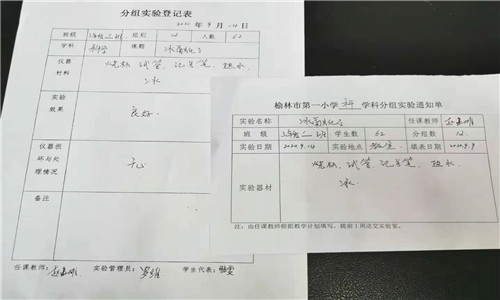 分组实验登记表
2020年9月14日
班级 三年级二班 组别 12 人数 62
学科 科学 课题 冰融化了
仪器材料 烧杯、试管、记号笔、热水、冰
实验效果 良好
仪器损坏与处理情况 无
备注
任课教师: 实验管理员: 学生代表:
榆林市第一小学 科 学科分组实验通知单
实验名称 冰融化了 任课教师
班级 三年级二班 学生数 62 分组数 12
实验日期 2020.9.14 实验地点 教室 填表日期 2020.9.9
实验器材 烧杯、试管、记号笔、热水、冰
注:由任课教师根据教学计划填写,提前1周送交实验室。